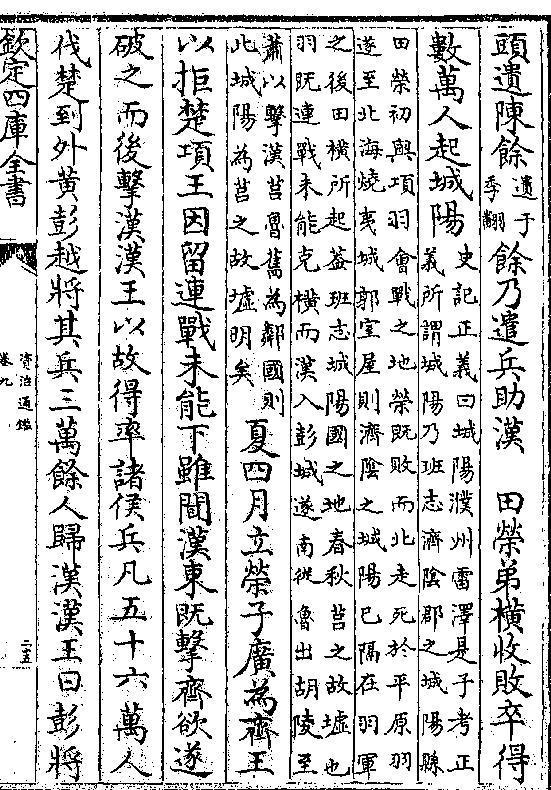 頭遺陳餘遺于季翻餘乃遣兵助漢　田榮弟橫收敗卒得
數萬人起城陽史記正義曰城陽濮州雷澤是予考正
義所謂城陽乃班志濟陰郡之城陽縣
田榮初與項羽會戰之地榮既敗而北走死於平原羽
遂至北海燒夷城郭室屋則濟陰之城陽已隔在羽軍
之後田橫所起蓋班志城陽國之地春秋莒之故墟也
羽既連戰未能克橫而漢入彭城遂南從魯出胡陵至
蕭以擊漢莒魯舊為鄰國則
此城陽為莒之故墟明矣夏四月立榮子廣為齊王
以拒楚項王因留連戰未能下雖聞漢東既擊齊欲遂
破之而後擊漢漢王以故得率諸侯兵凡五十六萬人
伐楚到外黃彭越將其兵三萬餘人歸漢漢王曰彭將
欽定四庫全書
資治通鑑
卷九
二五